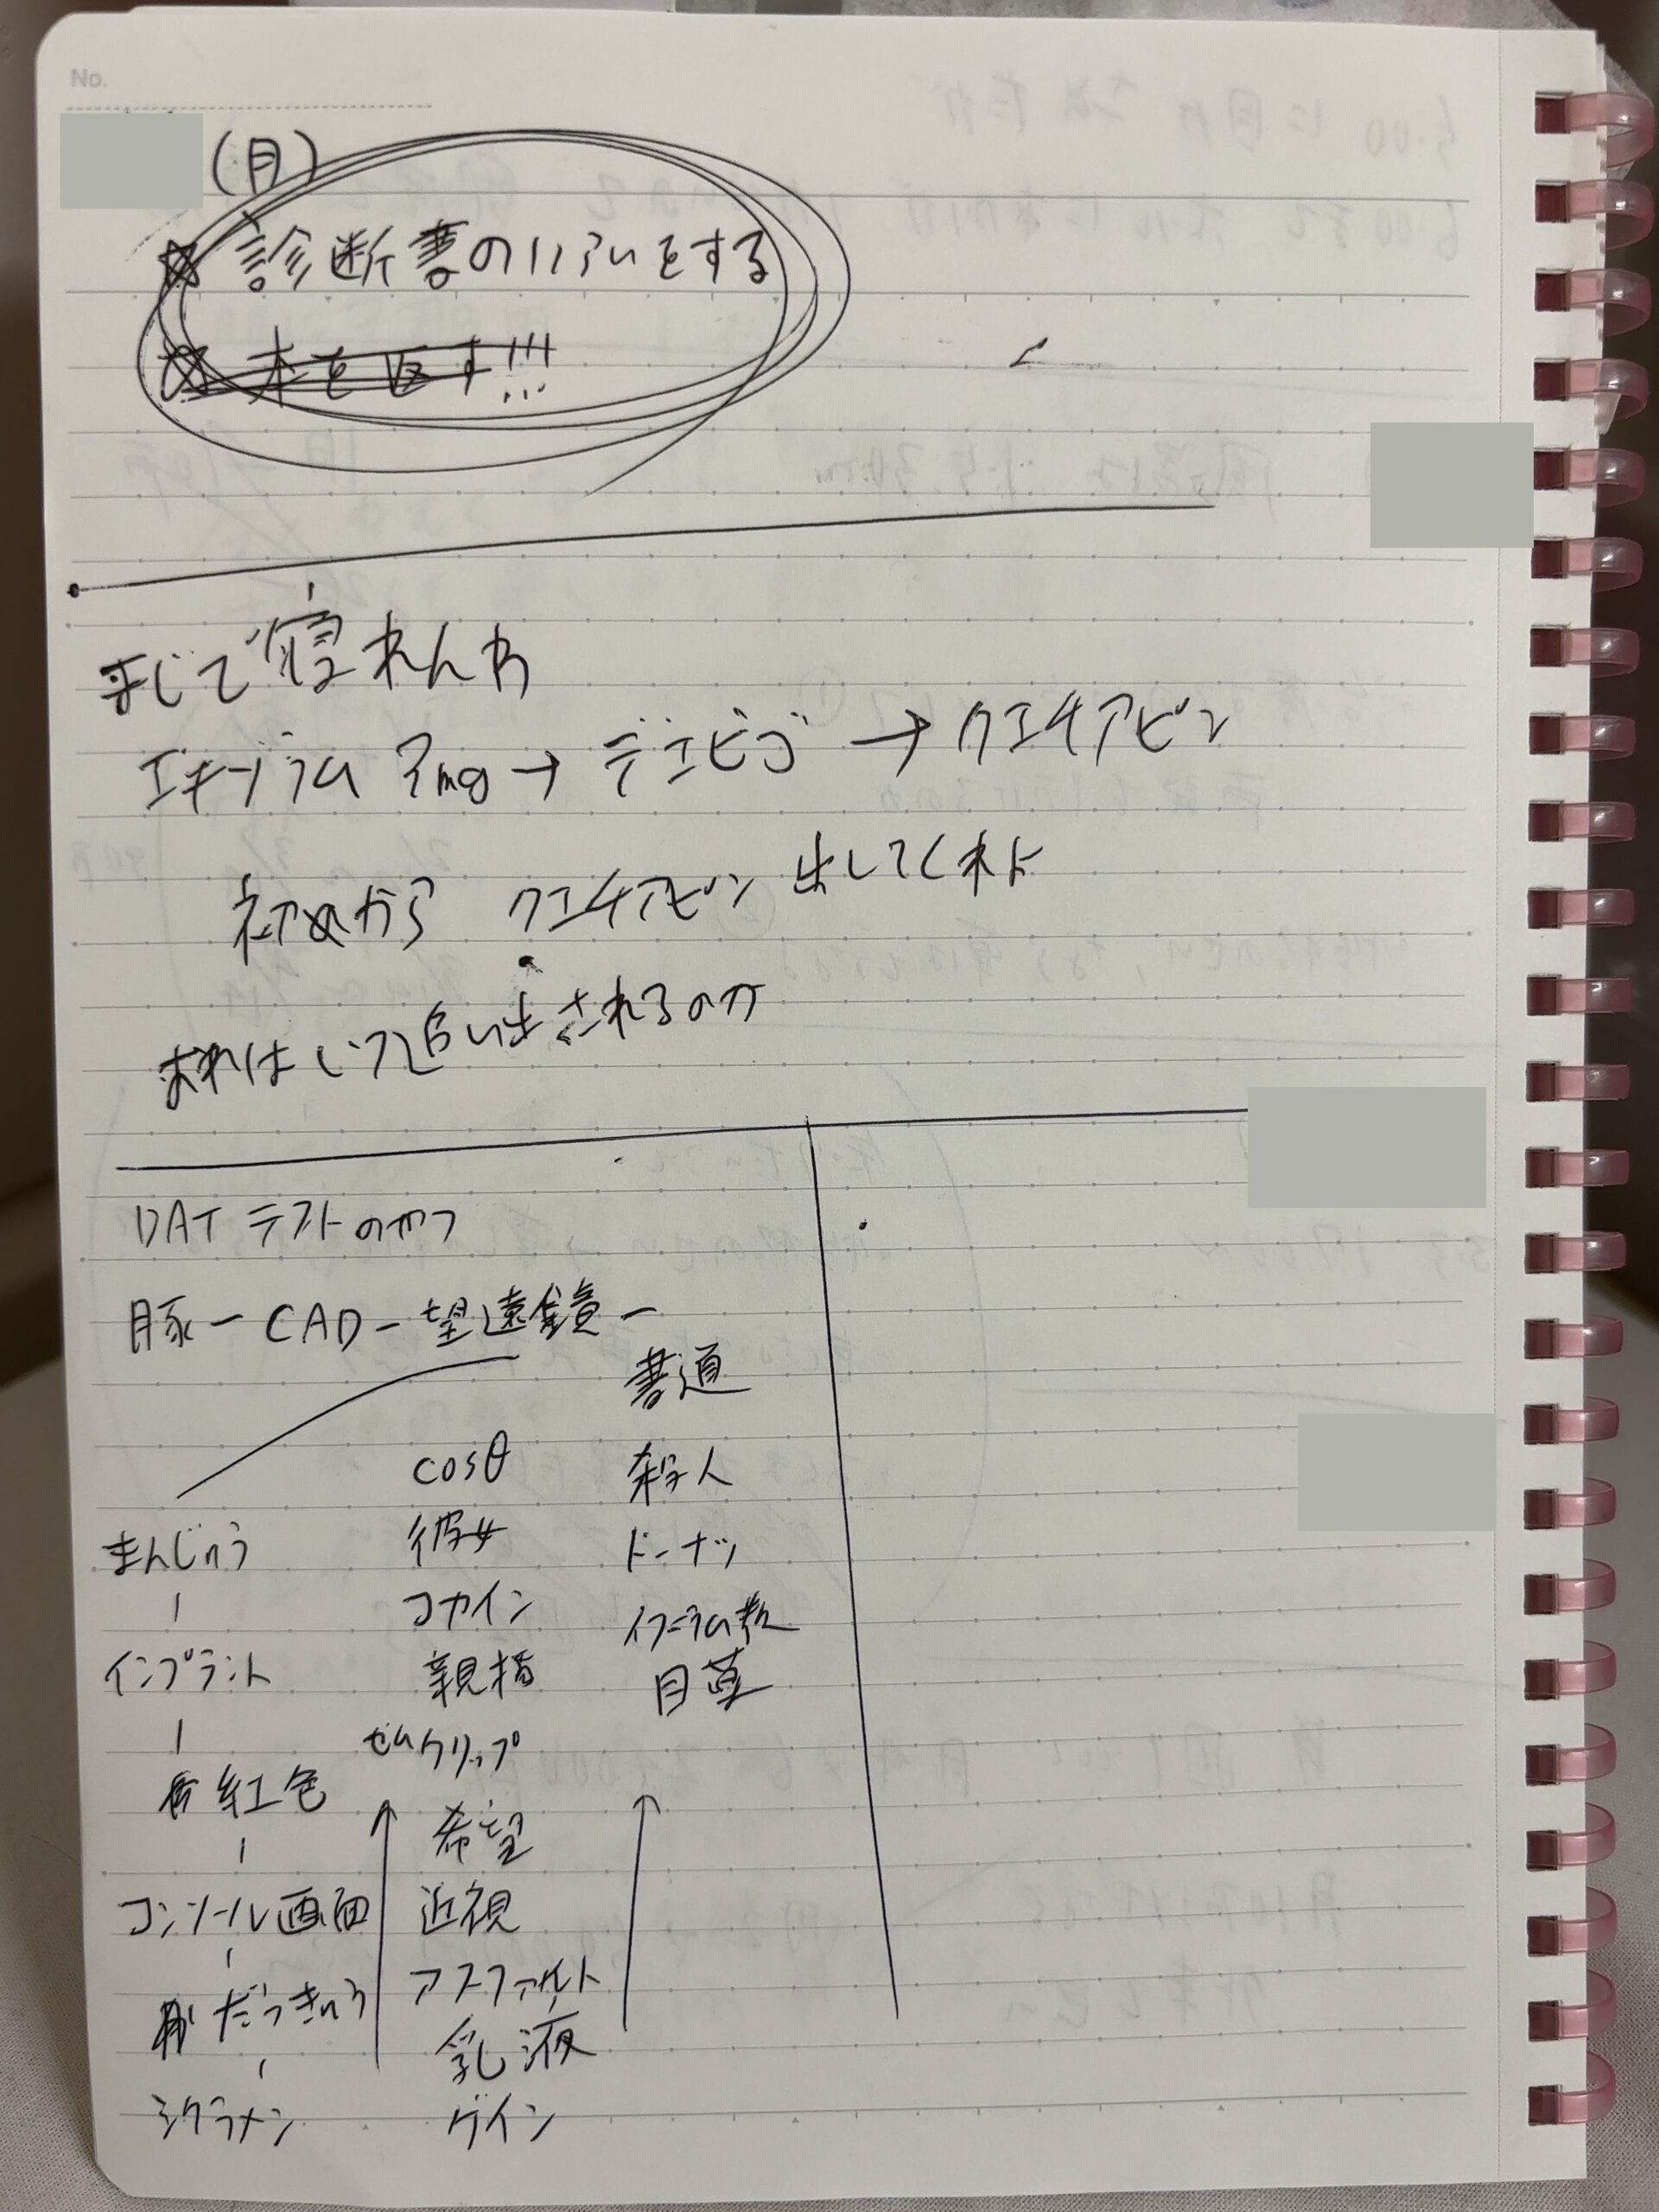 No.
(月)
☆ 診断書のいらいをする
☆ 本を返す!!!
まじで寝れんわ
エチゾラム 1mg → デエビゴ → クエチアピン
初めから クエチアピン 出してくれよ
おれはいつ追い出されるのか
DATテストのやつ
豚 ー CAD ー 望遠鏡 ー
書道
cosθ 殺人
まんじゅう 彼女 ドーナツ
コカイン
インプラント 親指
ゼムクリップ
紅色
希望
コンソール画面 近視
だっきゅう アスファルト
乳液
シクラメン ゲイン